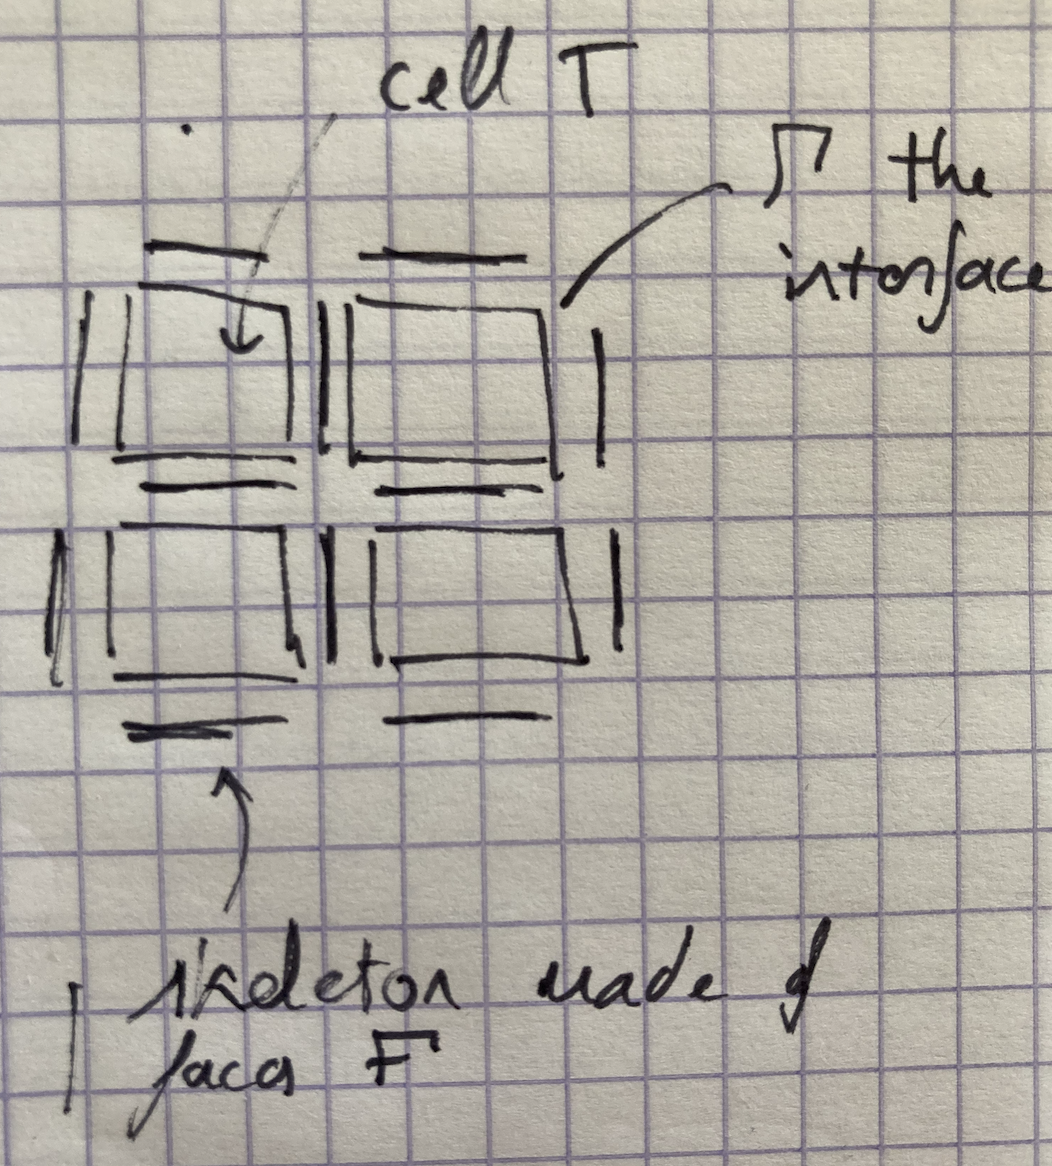 cell T
Γ the
interface
skeleton made of
faces F